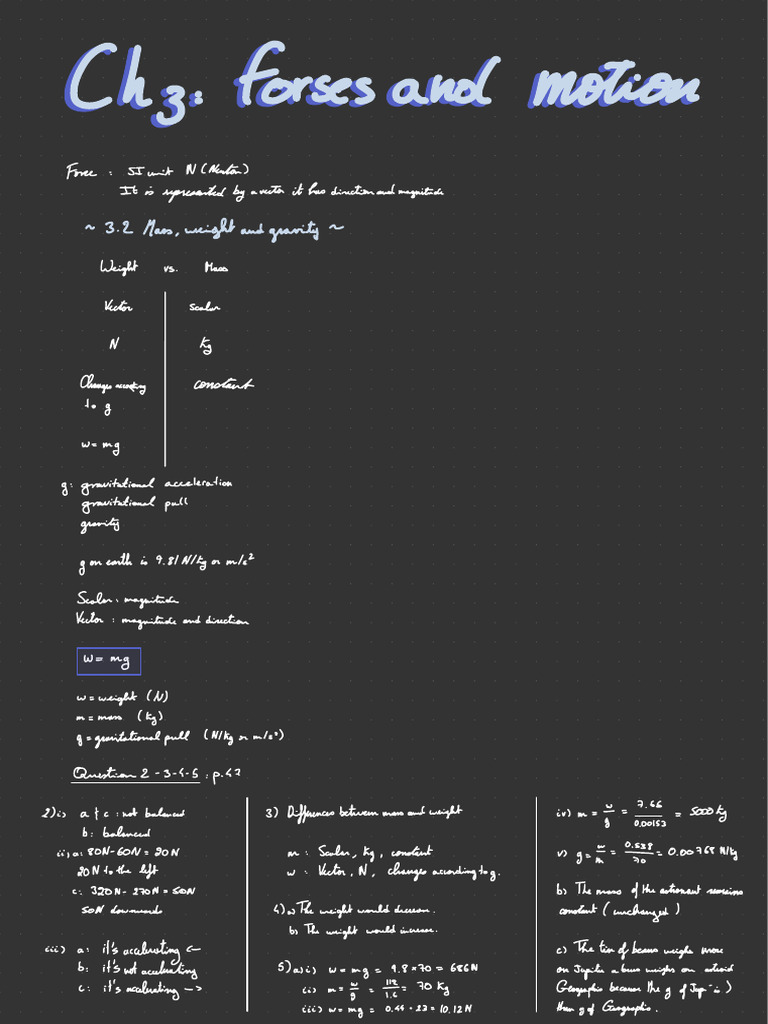 Ch 3: forses and motion
Force : SI unit N (Newton)
It is represented by a vector it has direction and magnitude
~ 3.2 Mass, weight and gravity ~
Weight vs. Mass
Vector scalar
N kg
Changes according constant
to g
w = mg
g: gravitational acceleration
gravitational pull
gravity
g on earth is 9.81 N/kg or m/s²
Scalar: magnitude
Vector : magnitude and direction
w = mg
w = weight (N)
m = mass (kg)
g = gravitational pull (N/kg or m/s²)
Question 2 - 3 - 4 - 5 : p.47
2) i) a & c : not balanced
b : balanced
ii) a : 80N - 60N = 20N
20N to the left
c : 320N - 270N = 50N
50N downwards
iii) a : it's accelerating <-
b : it's not accelerating
c : it's acelerating -->
3) Differences between mass and weight
m : Scalar, kg, constant
w : Vector, N, changes according to g.
4) a) The weight would decrease.
b) The weight would increase.
5) a) i) w = mg = 9.8 × 70 = 686N
(i) m = w/g = 112/1.6 = 70 Kg
iii) w = mg = 0.44 · 23 = 10.12N
iv) m = w/g = 7.66/0.00153 = 5000 kg
v) g = w/m = 0.538/70 = 0.00768 N/kg
b) The mass of the astronaut remains
constant (unchanged)
c) The tin of beans weighs more
on Jupiter a beans weighs on astroid
Geographis because the g of Jup
than g of Geographis.